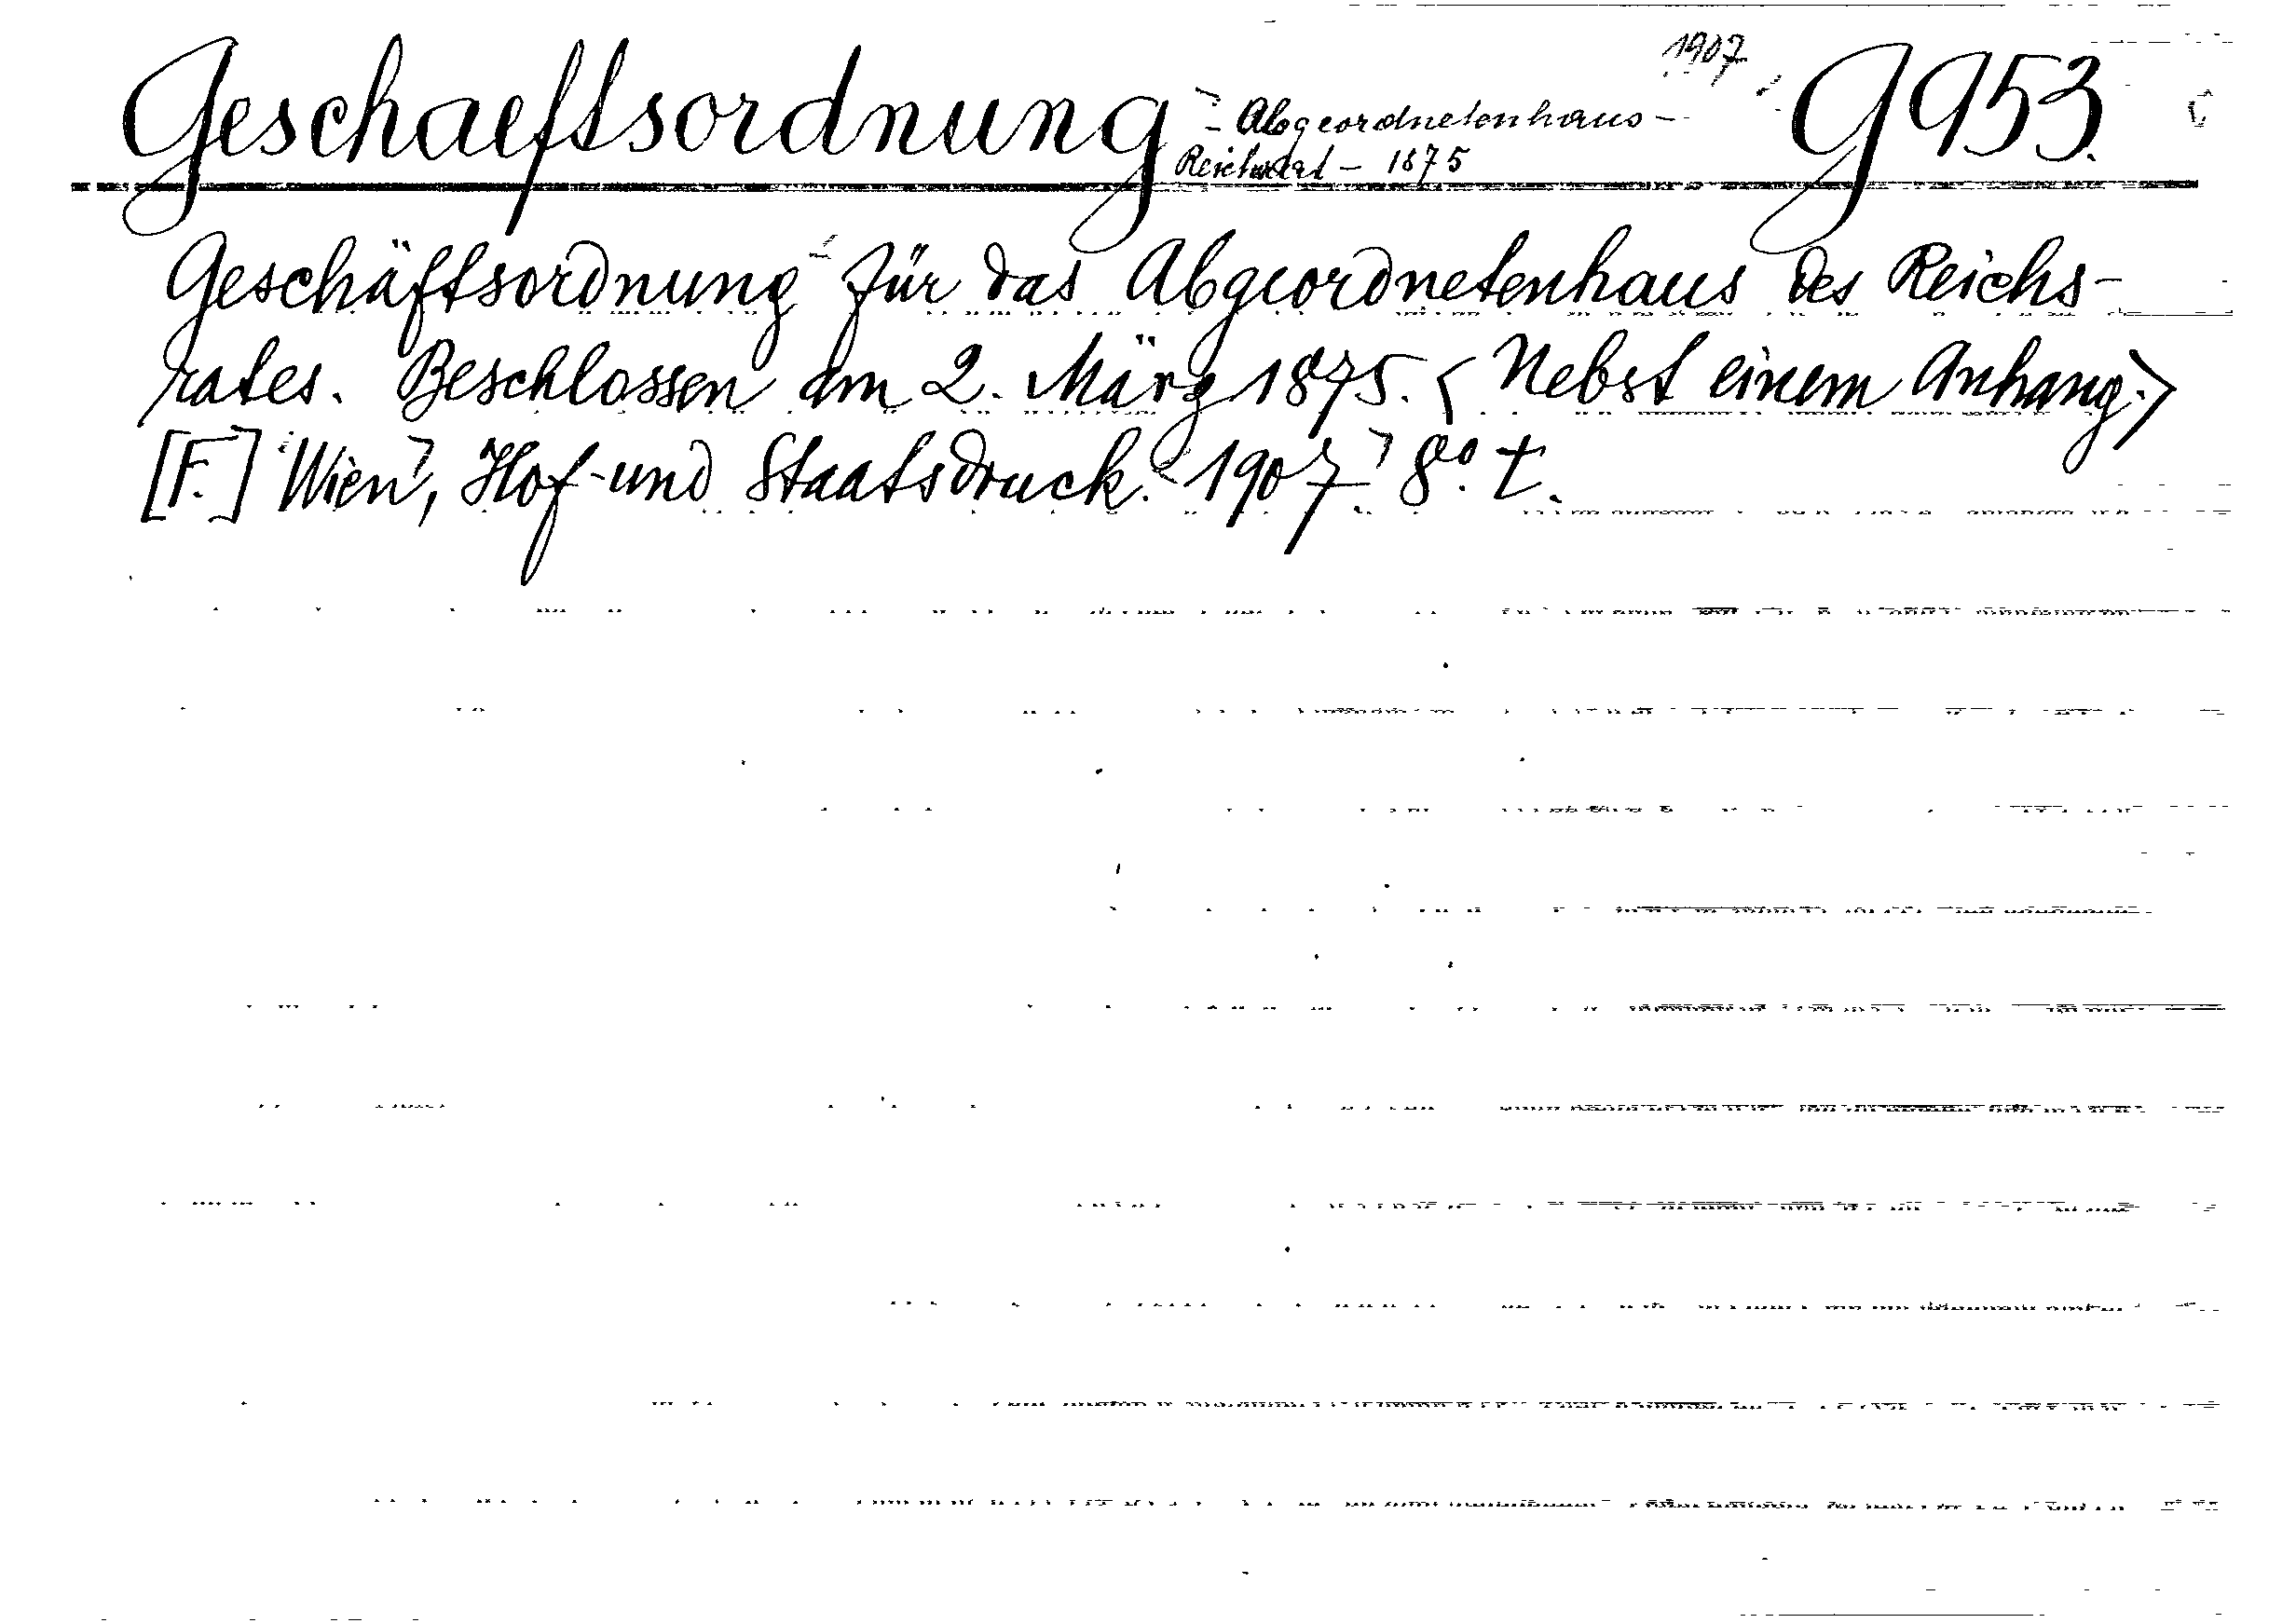 1907
Geschaeftsordnung - Abgeordnetenhaus - G 953.
Reichsrat - 1875
Geschäftsordnung für das Abgeordnetenhaus des Reichs-
rates. Beschlossen am 2. März 1875. < Nebst einem Anhang.>
[F.] Wien, Hof- und Staatsdruck. 1907. 8º. t.